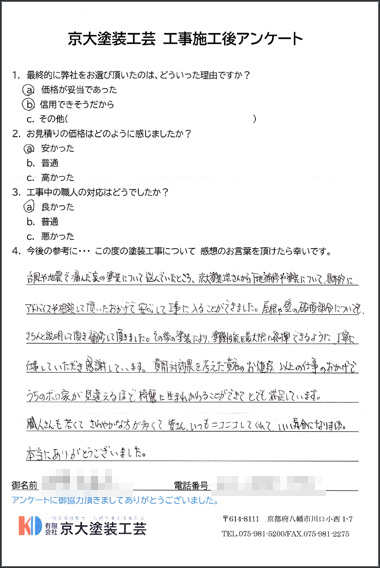 京大塗装工芸 工事施工後アンケート
1. 最終的に弊社をお選び頂いたのは、どういった理由ですか？
a 価格が妥当であった
b 信用できそうだから
c. その他( )
2. お見積りの価格はどのように感じましたか？
a 安かった
b. 普通
c. 高かった
3. 工事中の職人の対応はどうでしたか？
a 良かった
b. 普通
c. 悪かった
4. 今後の参考に・・・ この度の塗装工事について 感想のお言葉を頂けたら幸いです。
台風や地震で痛んだ家の塗装について悩んでいたところ、京大塗装工芸さんから
アドバイスや相談して頂いたおかげで安心して工事に入ることができました。屋根や壁の破損部分について、
きちんと説明して頂き補修して頂きました。その後の塗装により、できるように、丁寧に
仕事していただき感謝しています。費用対効果を考えた お値段 以上の仕事のおかげで
うちのボロ家が見違えるほど綺麗に生まれかわることができてとても満足しています。
職人さんも若くてさわやかな方が多くて皆さん、いつもニコニコしてくれて、いい気分になりました。
本当にありがとうございました。
御名前 電話番号
アンケートに御協力頂きましてありがとうございました。
KD 有限会社 京大塗装工芸
〒614-8111 京都府八幡市川口小西 1-7
TEL.075-981-5200/FAX.075-981-2275